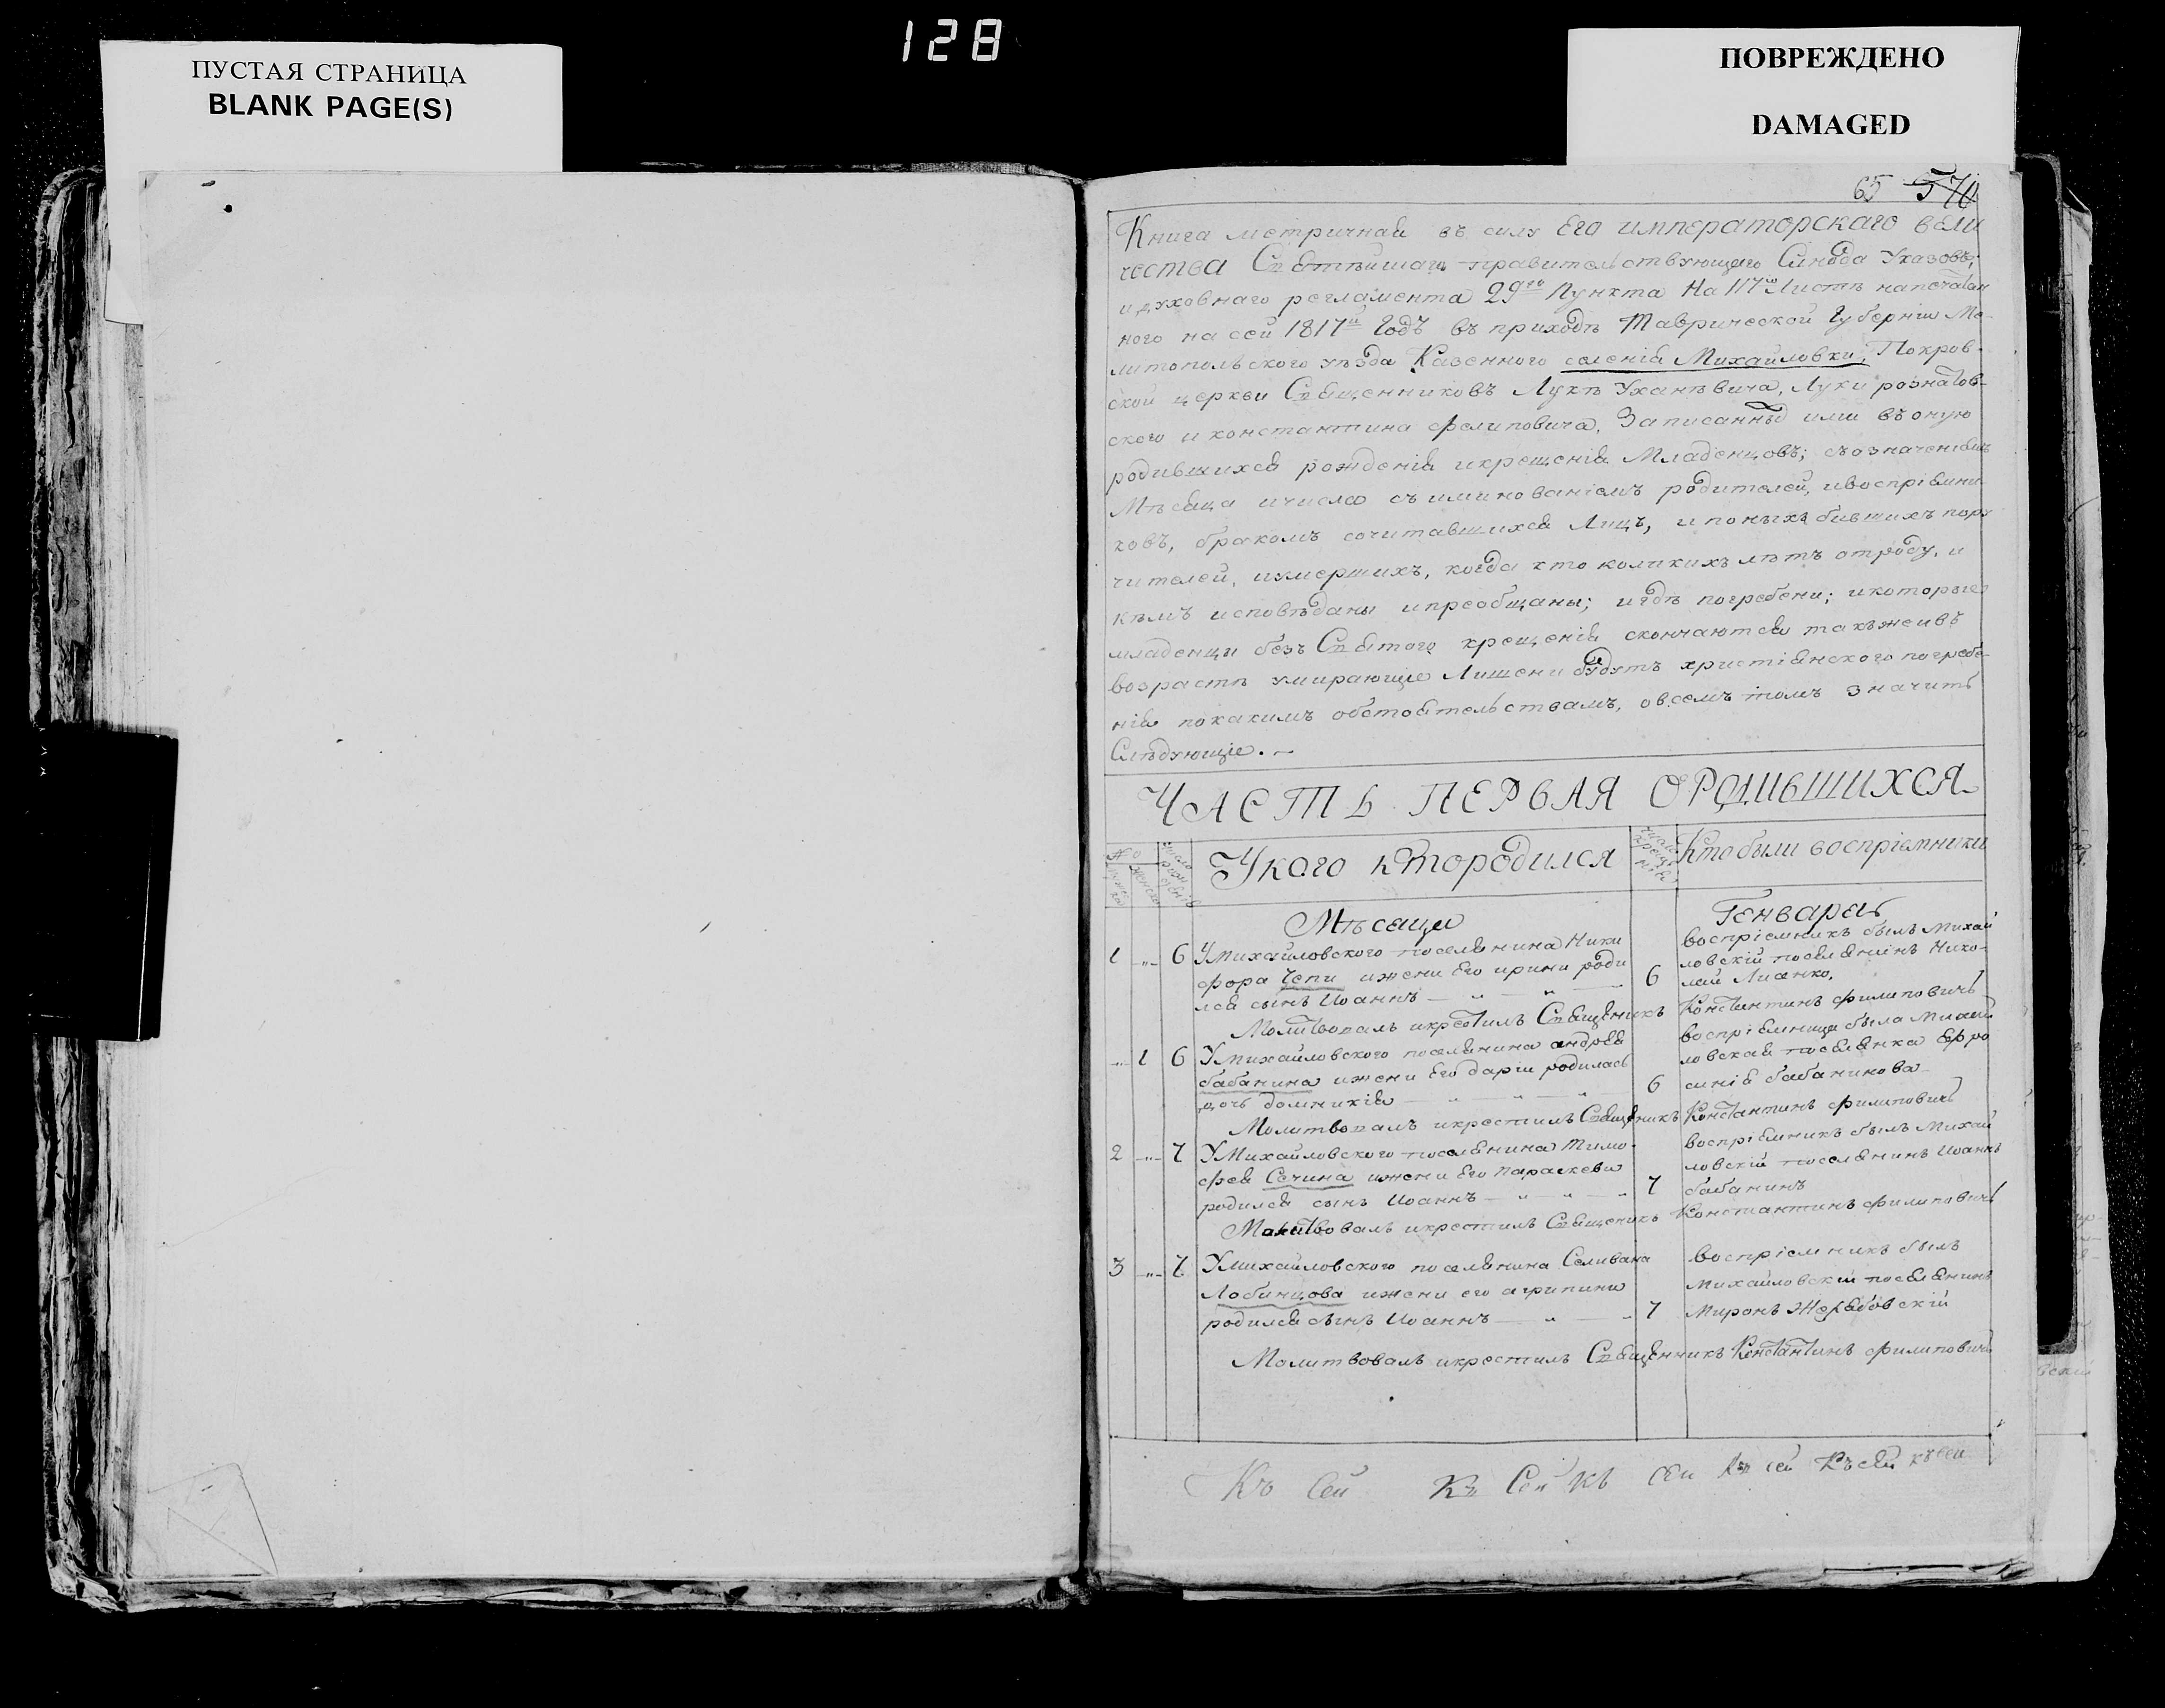 128
ПУСТАЯ СТРАНИЦА
BLANK PAGE(S)
ПОВРЕЖДЕНО
DAMAGED
65 570
Книга метричная въ силу Его императорскаго вели
чества Святѣйшаго правительствующаго Синода Указовъ;
и духовнаго регламента 29го Пункта На 117мъ Листѣ напечатан
ного на сей 1817й Годъ въ приходѣ Таврической Губерніи Ме-
литопольского уѣзда Казенного селенія Михайловки, Покров-
ской церкви Священниковъ Луки Уханѣвича, Луки рознатов-
ского и константина филиповича. Записанныя ими въ оную
родившихся рожденія икрещенія Младенцовъ; съозначеніемъ
Мѣсяца ичисла съ именованіемъ родителей, ивоспріемни
ковъ, бракомъ сочитавшихся Лицъ, и поныхъ бившихъ пору
чителей, иумершихъ, когда кто коликихъ лѣтъ отроду, и
кѣмъ исповѣданы ипреобщаны; игдѣ погребени; икоторые
младенци безъ Святого крещенія скончаются такъжеивъ
возрастѣ умирающіе Лишени будутъ христіянского погребе-
нія покакимъ обстоятельствамъ, овсемъ томъ значитъ
Слѣдующіе.-
ЧАСТЬ ПЕРВАЯ ОРОДИВШИХСЯ
№
Укого ктородился
Число крещенія
Ктобыли воспріемники
Мѣсяца
Генваря
1 „ 6 Умихайловского поселянина Ники
фора Чепи ижени Его ирини роди
лся сынъ Иоаннъ — „ — „ —
6
воспріемникъ былъ Михай
ловскій поселянинъ Нико-
лай Лисенко.
Молитвовалъ икрестилъ Священникъ Константинъ филиповичъ
„ 1 6 Умихайловского поселянина андрея
бабанина ижени Его даріи родилась
дочь домникія — „ — „ — „
6
воспріемница была Михай
ловская поселянка Ефро
синія бабанинова
Молитвовалъ икрестилъ Священникъ Константинъ филиповичъ
2 „ 7 УМихайловского поселянина Тимо-
фея Сечина ижени Его параскеви
родился сынъ Иоаннъ — „ — „ — „
7
воспріемникъ былъ Михай
ловскій поселянинъ Иоаннъ
бабанинъ
Молитвовалъ икрестилъ Священикъ Константинъ филиповичъ
3 „ 7 Умихайловского поселянина Селивана
Лобинцова ижени его агрипини
родился сынъ Иоаннъ — „ — „
7
воспріемникъ былъ
михайловскій поселянинъ
Миронъ
Молитвовалъ икрестилъ Священникъ Константинъ филиповичъ
Къ Сей Къ Сей Къ Сеи Къ сей Къ сей къ сеи